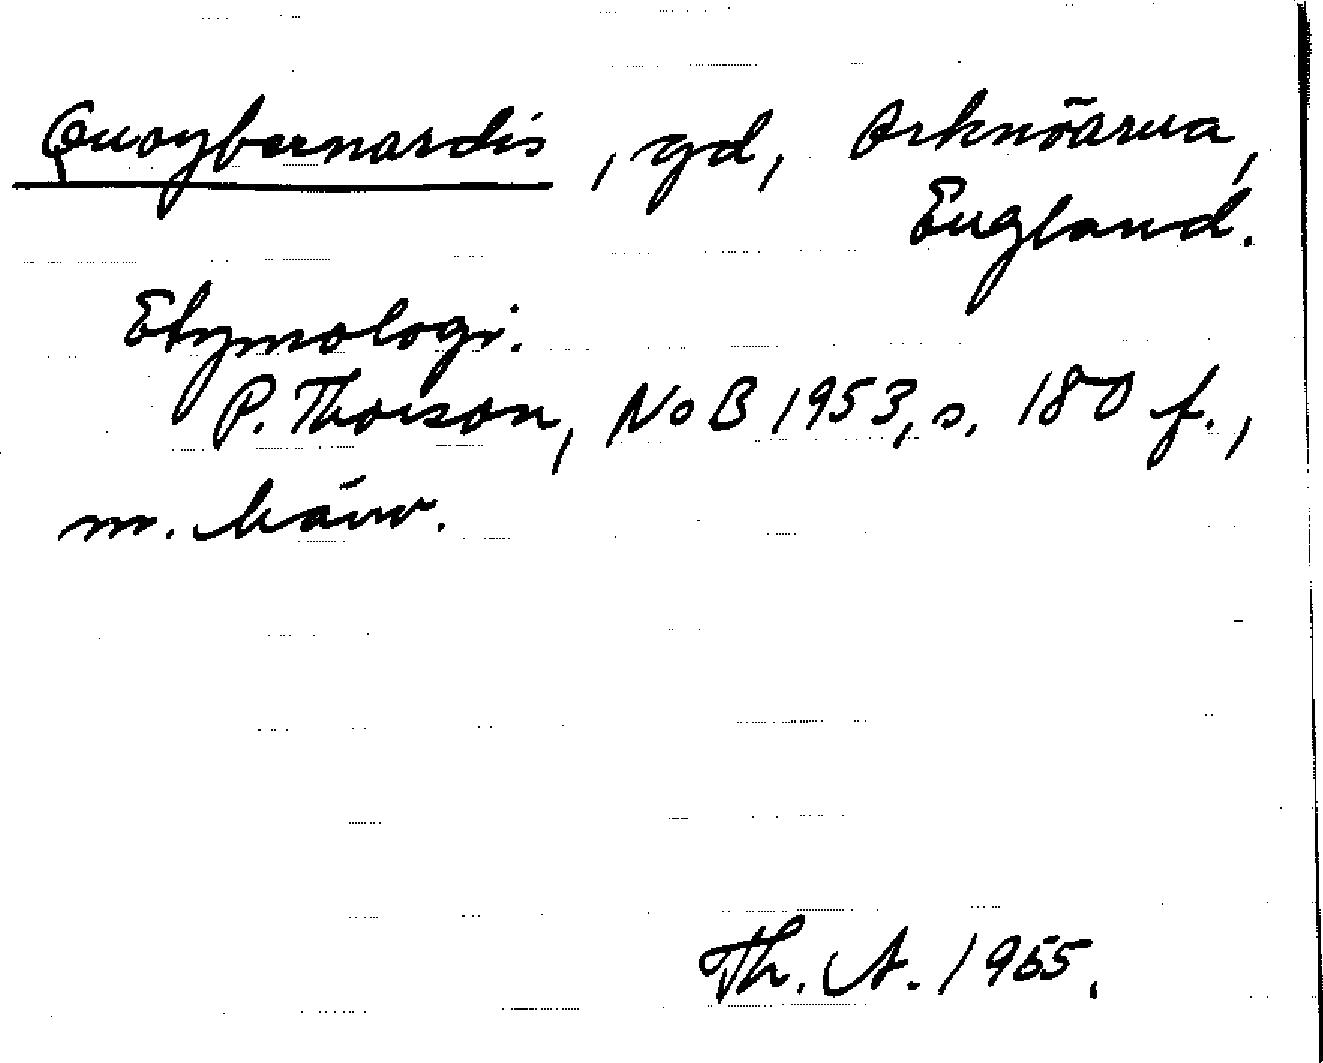 Quoybernardis, gd, Orknöarna,
England.
Etymologi.
P. Thorson, NoB 1953, s. 180 f.,
m. hänv.
Th. A. 1965.